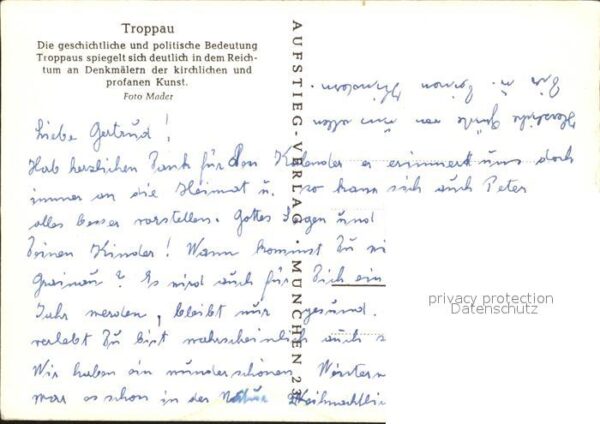 Troppau
Die geschichtliche und politische Bedeutung
Troppaus spiegelt sich deutlich in dem Reich-
tum an Denkmälern der kirchlichen und
profanen Kunst.
Foto Mader
AUFSTIEG-VERLAG · MÜNCHEN 23
Liebe Gertrud!
Hab herzlichen Dank für den Kalender er erinnert uns doch
immer an die Heimat u. so kann sich auch Peter
alles besser vorstellen. Gottes Segen und
Deinen Kinder! Wann kommst Du
Grainau? Es wird auch für Dich ein
Jahr werden, bleibt nur gesund.
verlebt Du bist wahrscheinlich auch
Wir haben ein wunderschönen
war es schon in der Natur
Herzliche Grüße von uns allen
privacy protection
Datenschutz